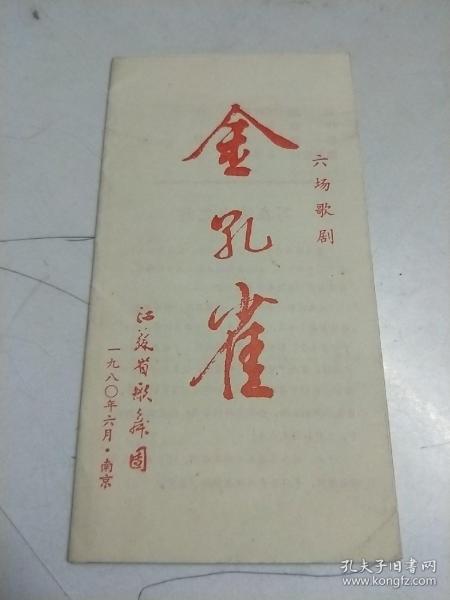 六场歌剧
金孔雀
江苏省歌舞团
一九八〇年六月·南京
孔夫子旧书网
www.kongfz.com